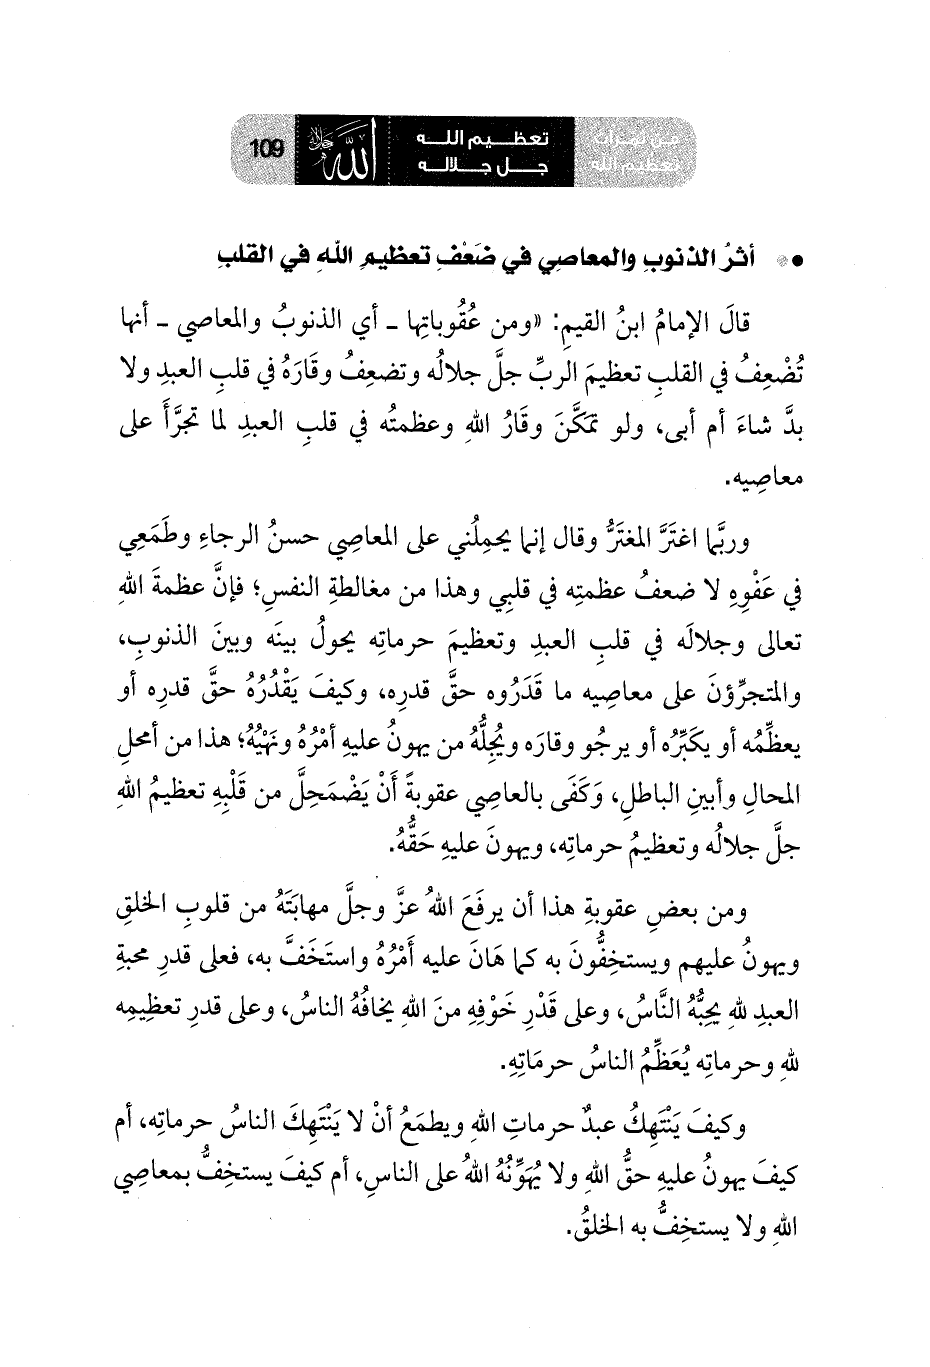 من ثمرات
تعظيم الله
تعظــيم اللــه
جــل جــلالــه
الله جل جلاله
109
أثرُ الذنوبِ والمعاصِي في ضَعْفِ تعظيمِ اللهِ في القلبِ
قالَ الإمامُ ابنُ القيمِ: «ومن عُقُوباتِها ـ أي الذنوبُ والمعاصي ـ أنها
تُضْعِفُ في القلبِ تعظيمَ الربِّ جلَّ جلالُه وتضعِفُ وقَارَهُ في قلبِ العبدِ ولا
بدَّ شاءَ أم أبى، ولو تمكَّنَ وقَارُ اللهِ وعظمتُه في قلبِ العبدِ لما تجرَّأَ على
معاصِيه.
وربَّما اغترَّ المغترُّ وقال إنما يحمِلُني على المعاصِي حسنُ الرجاءِ وطَمَعِي
في عَفْوِهِ لا ضعفُ عظمتِه في قلبِي وهذا من مغالطةِ النفسِ؛ فإنَّ عظمةَ اللهِ
تعالى وجلالَه في قلبِ العبدِ وتعظيمَ حرماتِه يحولُ بينَه وبينَ الذنوبِ،
والمتجرِّؤنَ على معاصيه ما قَدَرُوه حقَّ قدرِه، وكيفَ يَقْدُرُهُ حقَّ قدرِه أو
يعظِّمُه أو يكبِّرُه أو يرجُو وقارَه ويُجِلُّهُ من يهونُ عليهِ أمْرُهُ ونَهْيُهُ؛ هذا من أمحلِ
المحالِ وأبينِ الباطلِ، وَكَفَى بالعاصِي عقوبةً أَنْ يَضْمَحِلَّ من قَلْبِهِ تعظيمُ اللهِ
جلَّ جلالُه وتعظيمُ حرماتِه، ويهونَ عليهِ حَقُّهُ.
ومن بعضِ عقوبةِ هذا أن يرفَعَ اللهُ عزَّ وجلَّ مهابَتَهُ من قلوبِ الخلقِ
ويهونُ عليهم ويستخِفُّونَ به كما هَانَ عليه أَمْرُهُ واستَخَفَّ به، فعلى قدرِ محبةِ
العبدِ للهِ يحِبُّهُ النَّاسُ، وعلى قَدْرِ خَوْفِهِ منَ اللهِ يخافُهُ الناسُ، وعلى قدرِ تعظِيمِه
للهِ وحرماتِه يُعَظِّمُ الناسُ حرمَاتِهِ.
وكيفَ يَنْتَهِكُ عبدٌ حرماتِ اللهِ ويطمَعُ أنْ لا يَنْتَهِكَ الناسُ حرماتِه، أم
كيفَ يهونُ عليهِ حقُّ اللهِ ولا يُهَوِّنُهُ اللهُ على الناسِ، أم كيفَ يستخِفُّ بمعاصِي
اللهِ ولا يستخِفُّ به الخلقُ.